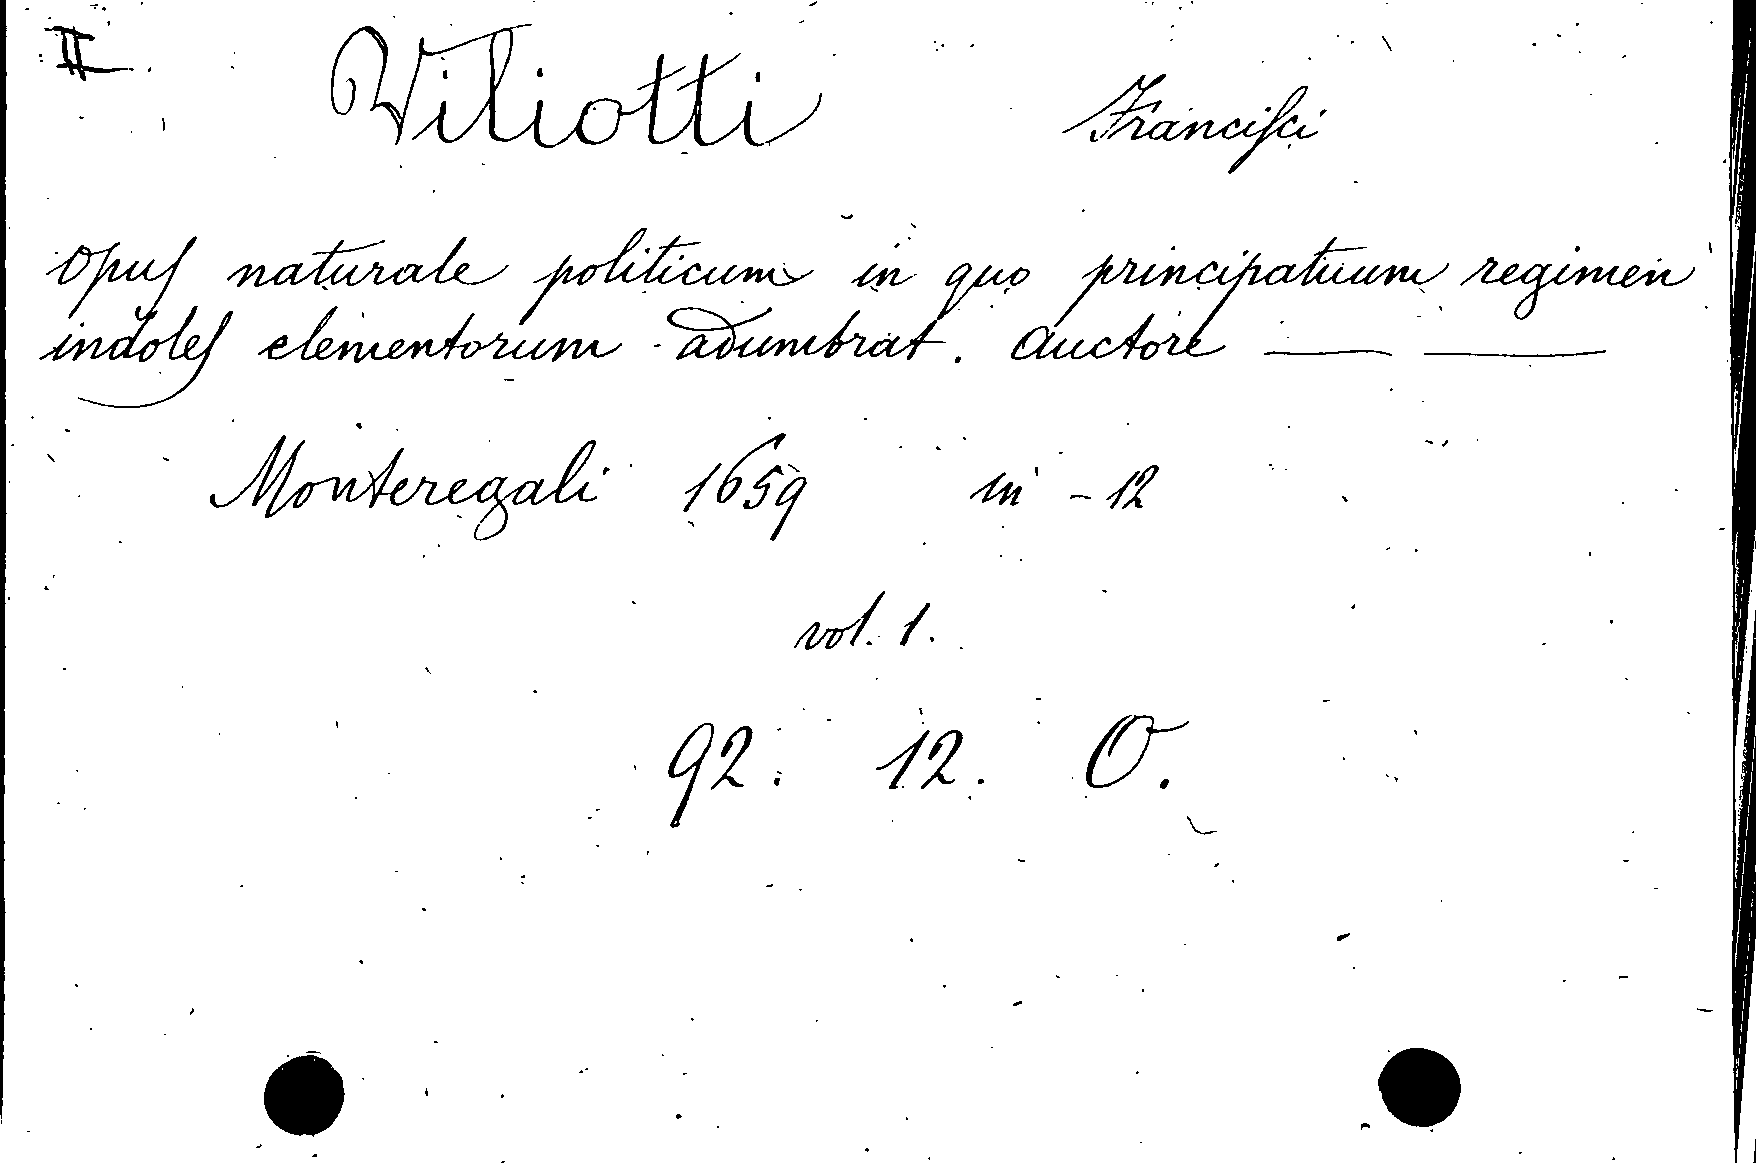 II
Viliotti Franciſci
Opuſ naturale politicum in quo principatuum regimen
indoleſ elementorum adumbrat. Auctore — —
Monteregali 1659 in - 12
vol. 1.
92. 12. O.